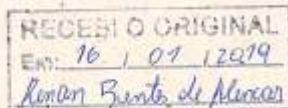 RECEBI O ORIGINAL
Em: 16 / 01 / 2019
Renan Bentes de Alencar